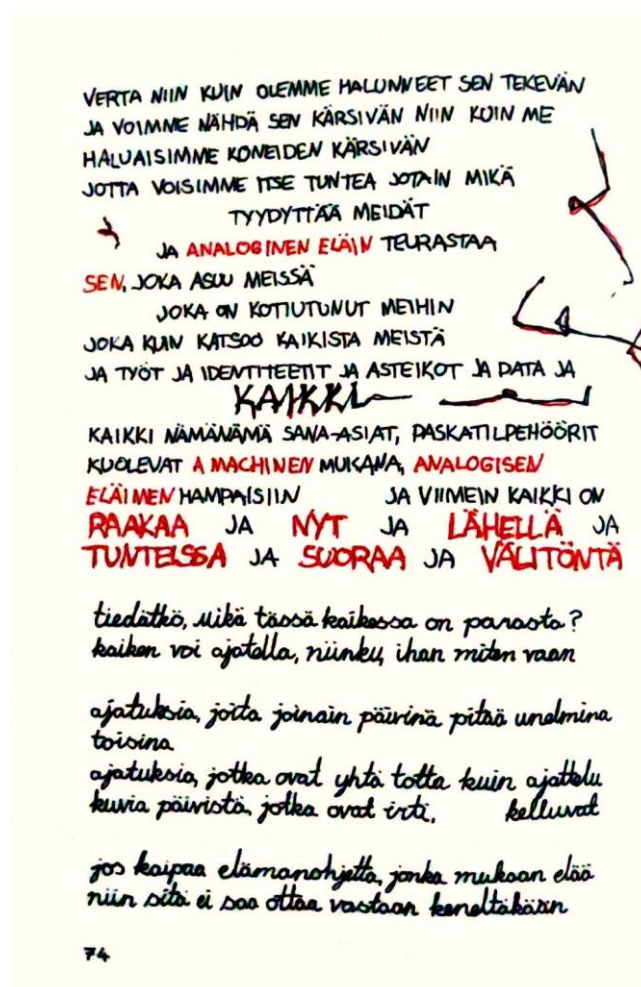 VERTA NIIN KUIN OLEMME HALUNNEET SEN TEKEVÄN
JA VOIMME NÄHDÄ SEN KÄRSIVÄN NIIN KUIN ME
HALUAISIMME KONEIDEN KÄRSIVÄN
JOTTA VOISIMME ITSE TUNTEA JOTAIN MIKÄ
TYYDYTTÄÄ MEIDÄT
JA ANALOGINEN ELÄIN TEURASTAA
SEN, JOKA ASUU MEISSÄ
JOKA ON KOTIUTUNUT MEIHIN
JOKA KUIN KATSOO KAIKISTA MEISTÄ
JA TYÖT JA IDENTITEETIT JA ASTEIKOT JA DATA JA
KAIKKI
KAIKKI NÄMÄNÄMÄ SANA-ASIAT, PASKATILPEHÖÖRIT
KUOLEVAT A MACHINEN MUKANA, ANALOGISEN
ELÄIMEN HAMPAISIIN JA VIIMEIN KAIKKI ON
RAAKAA JA NYT JA LÄHELLÄ JA
TUNTEISSA JA SUORAA JA VÄLITÖNTÄ
tiedätkö, mikä tässä kaikessa on parasta?
kaiken voi ajatella, niinku, ihan miten vaan
ajatuksia, joita joinain päivinä pitää unelmina
toisina
ajatuksia, jotka ovat yhtä totta kuin ajattelu
kuvia päivistä, jotka ovat irti, kelluvat
jos kaipaa elämänohjetta, jonka mukaan elää
niin sitä ei saa ottaa vastaan keneltäkään
74